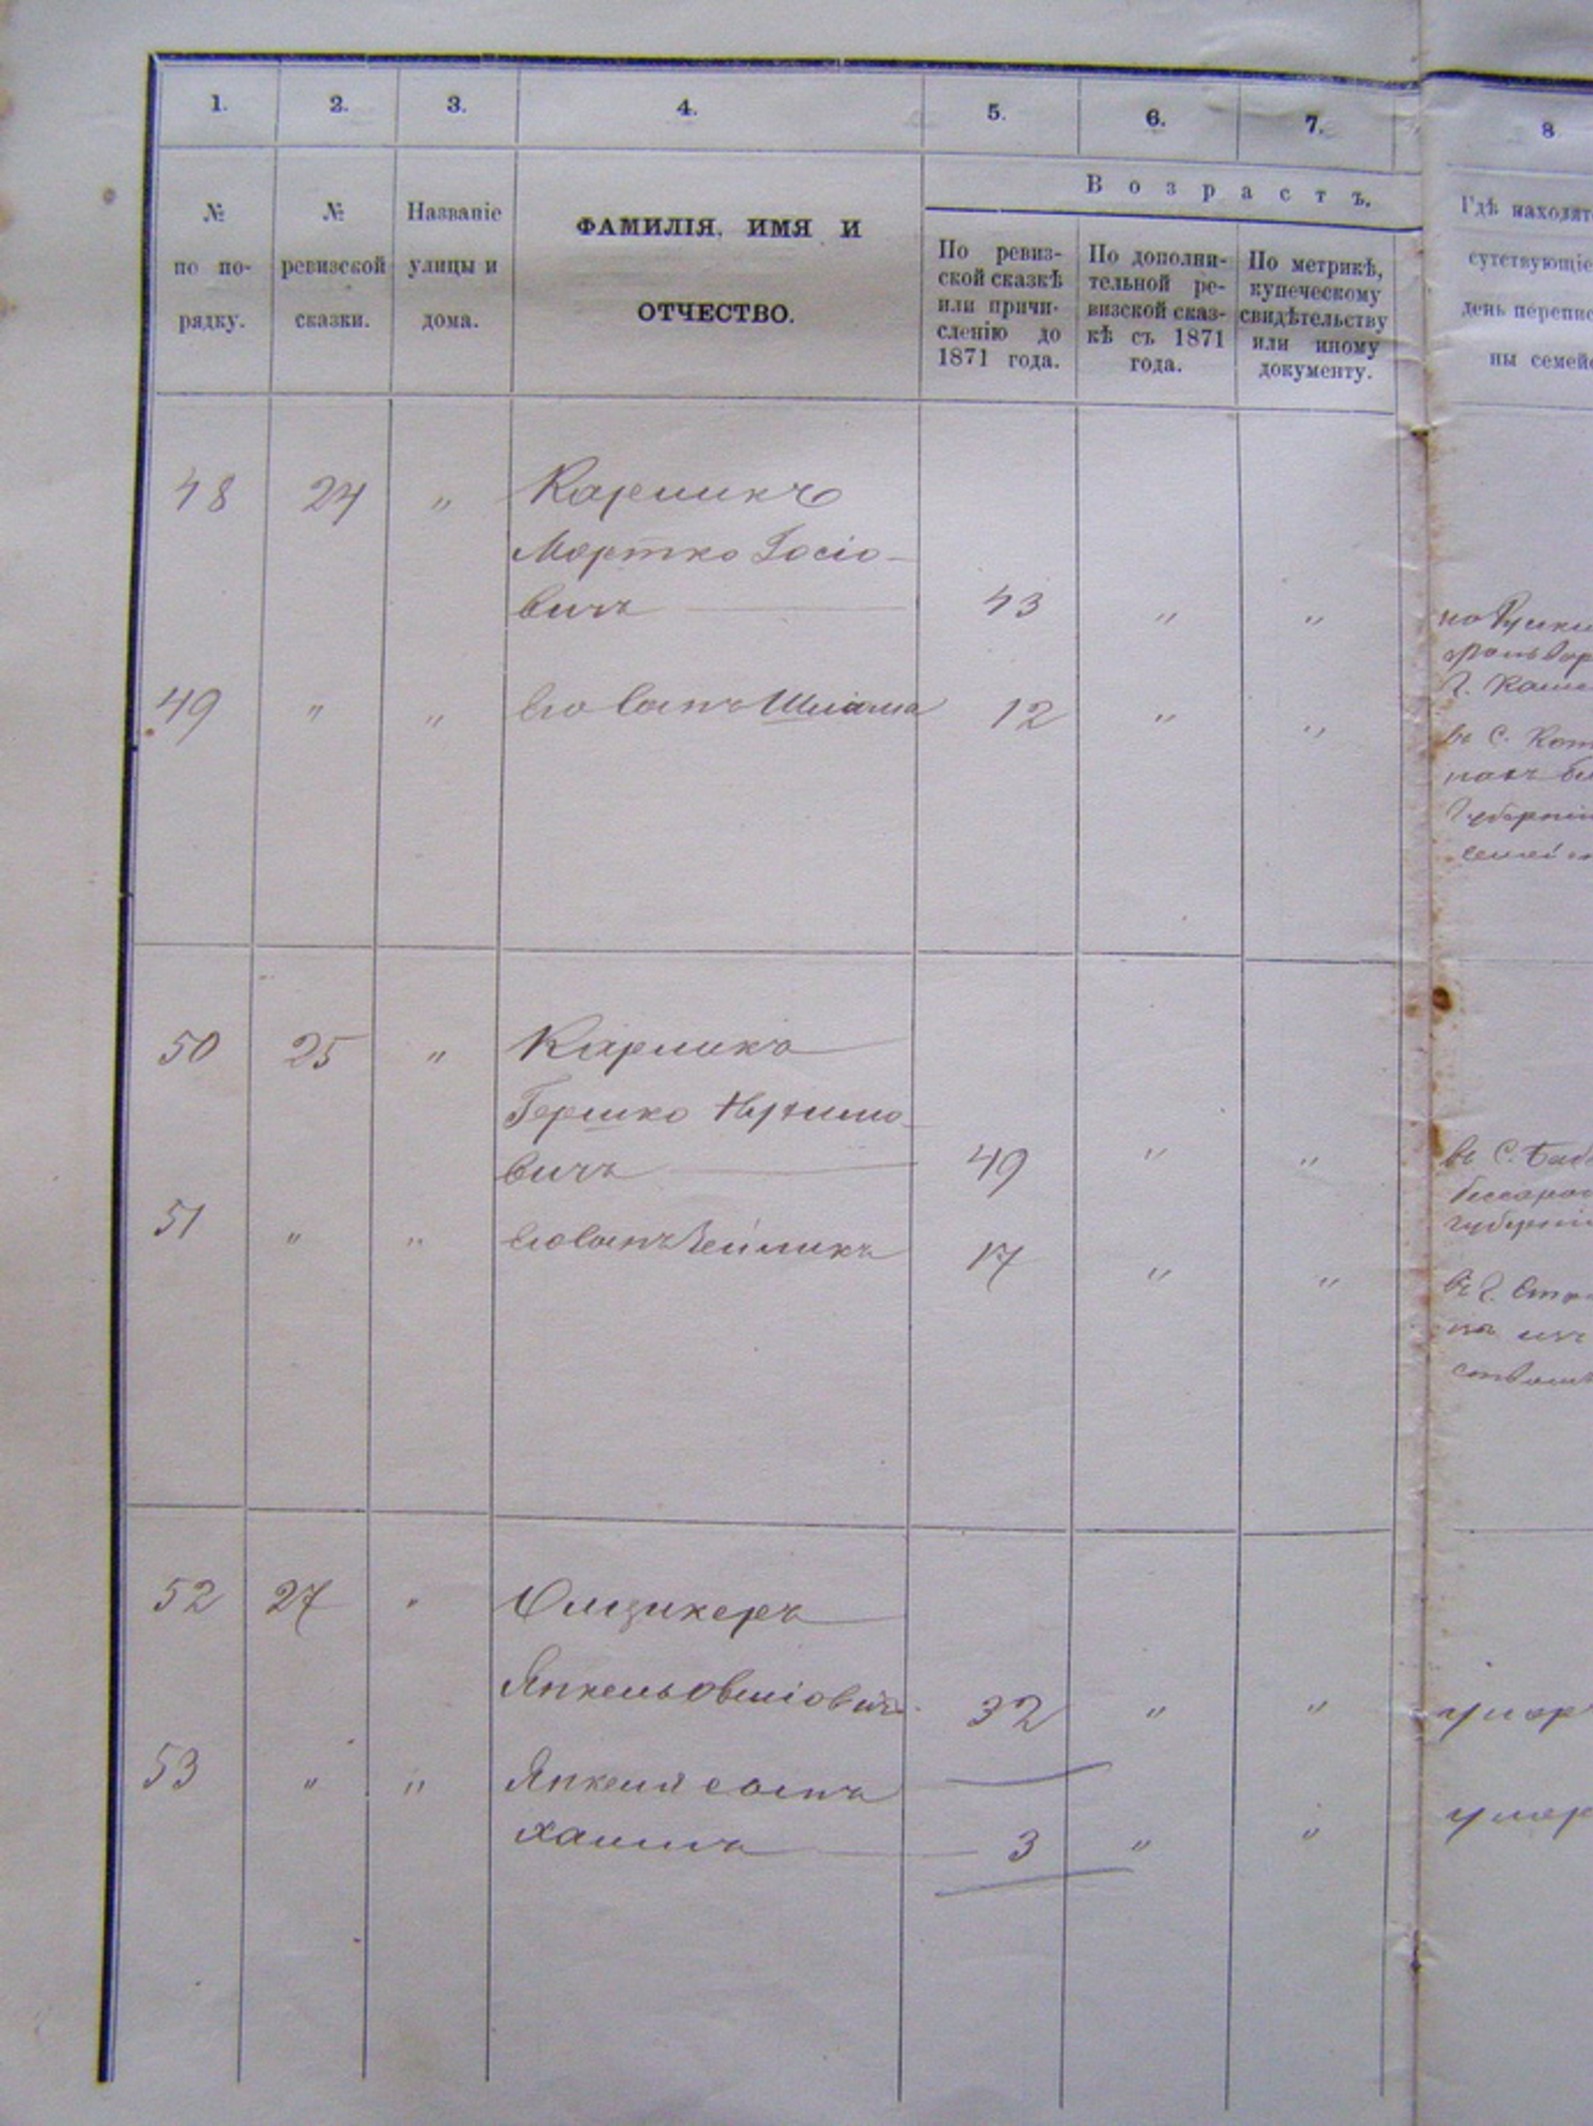 1. 2. 3. 4. 5. 6. 7. 8
№ по по- рядку.
№ ревизской сказки.
Названіе улицы и дома.
ФАМИЛІЯ, ИМЯ И
ОТЧЕСТВО.
Возрастъ.
По ревиз-
ской сказкѣ
или причи-
сленію до
1871 года.
По дополни-
тельной ре-
визской сказ-
кѣ съ 1871
года.
По метрикѣ,
купеческому
свидѣтельству
или иному
документу.
Гдѣ находят
сутствующіе
день перепис
ны семей
48 24 " Карликъ
Мортко Іосіо-
вичъ 43 " "
49 " " Его сынъ Шліома 12 " "
в С. 
Губерніи
50 25 " Карликъ
Гершко
вичъ 49 " "
51 " " Его сынъ Зейликъ 17 " "
в С.
губерніи
в г.
52 27 "
Янкель Овшіовичъ 32 " "
умер
53 " " Янкеля сынъ
Хаимъ 3 " "
умер